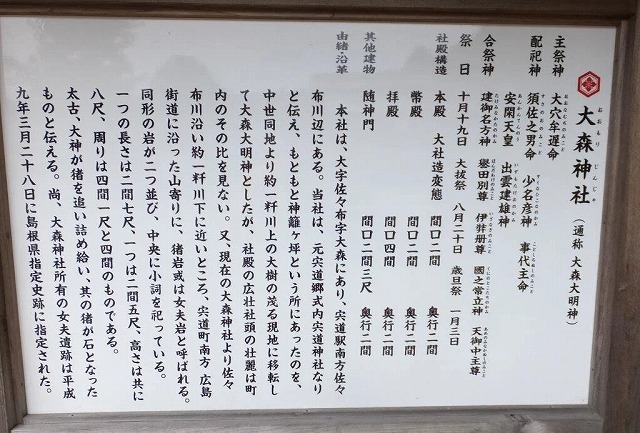 大森神社（通称 大森大明神）
おおもり じんじゃ
主祭神 大穴牟遅命
配祀神 須佐之男命 少名彦神 事代主命
安閑天皇 出雲建雄神
合祭神 建御名方神 誉田別尊 伊弉册尊 國之常立神 天御中主尊
祭日 十月十九日 大祓祭 八月二十日 歳旦祭 一月三日
社殿構造 本殿 大社造変態 間口二間 奥行二間
幣殿 間口二間 奥行二間
拝殿 間口四間 奥行二間
其他建物 随神門 間口二間三尺 奥行二間
由緒・沿革
本社は、大字佐々布字大森にあり、宍道駅南方佐々
布川辺にある。当社は、元宍道郷式内宍道神社なり
と伝え、もともと神籬ケ坪という所にあったのを、
中世同地より約一粁川上の大樹の茂る現地に移転し
て大森大明神としたが、社殿の広壮社頭の壮麗は町
内のその比を見ない。又、現在の大森神社より佐々
布川沿い約一粁川下に近いところ、宍道町南方 広島
街道に沿った山寄りに、猪岩或は女夫岩と呼ばれる。
同形の岩が二つ並び、中央に小詞を祀っている。
一つの長さは二間七尺、一つは二間五尺、高さは共に
八尺、周りは四間一尺と四間のものである。
太古、大神が猪を追い詰め給い、其の猪が石となった
ものと伝える。尚、大森神社所有の女夫遺跡は平成
九年三月二十八日に島根県指定史跡に指定された。